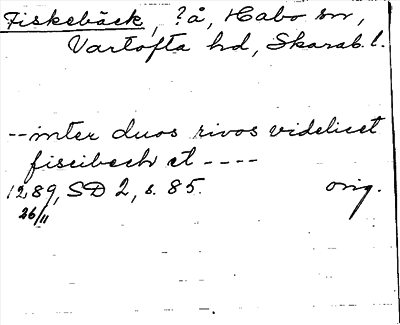 Fiskebäck, ?å, Habo sn,
Vartofta hd, Skarab. l.
-- inter duos rivos videlicet
fiscibech et ----
1289, SD 2, s. 85. orig.
26/11